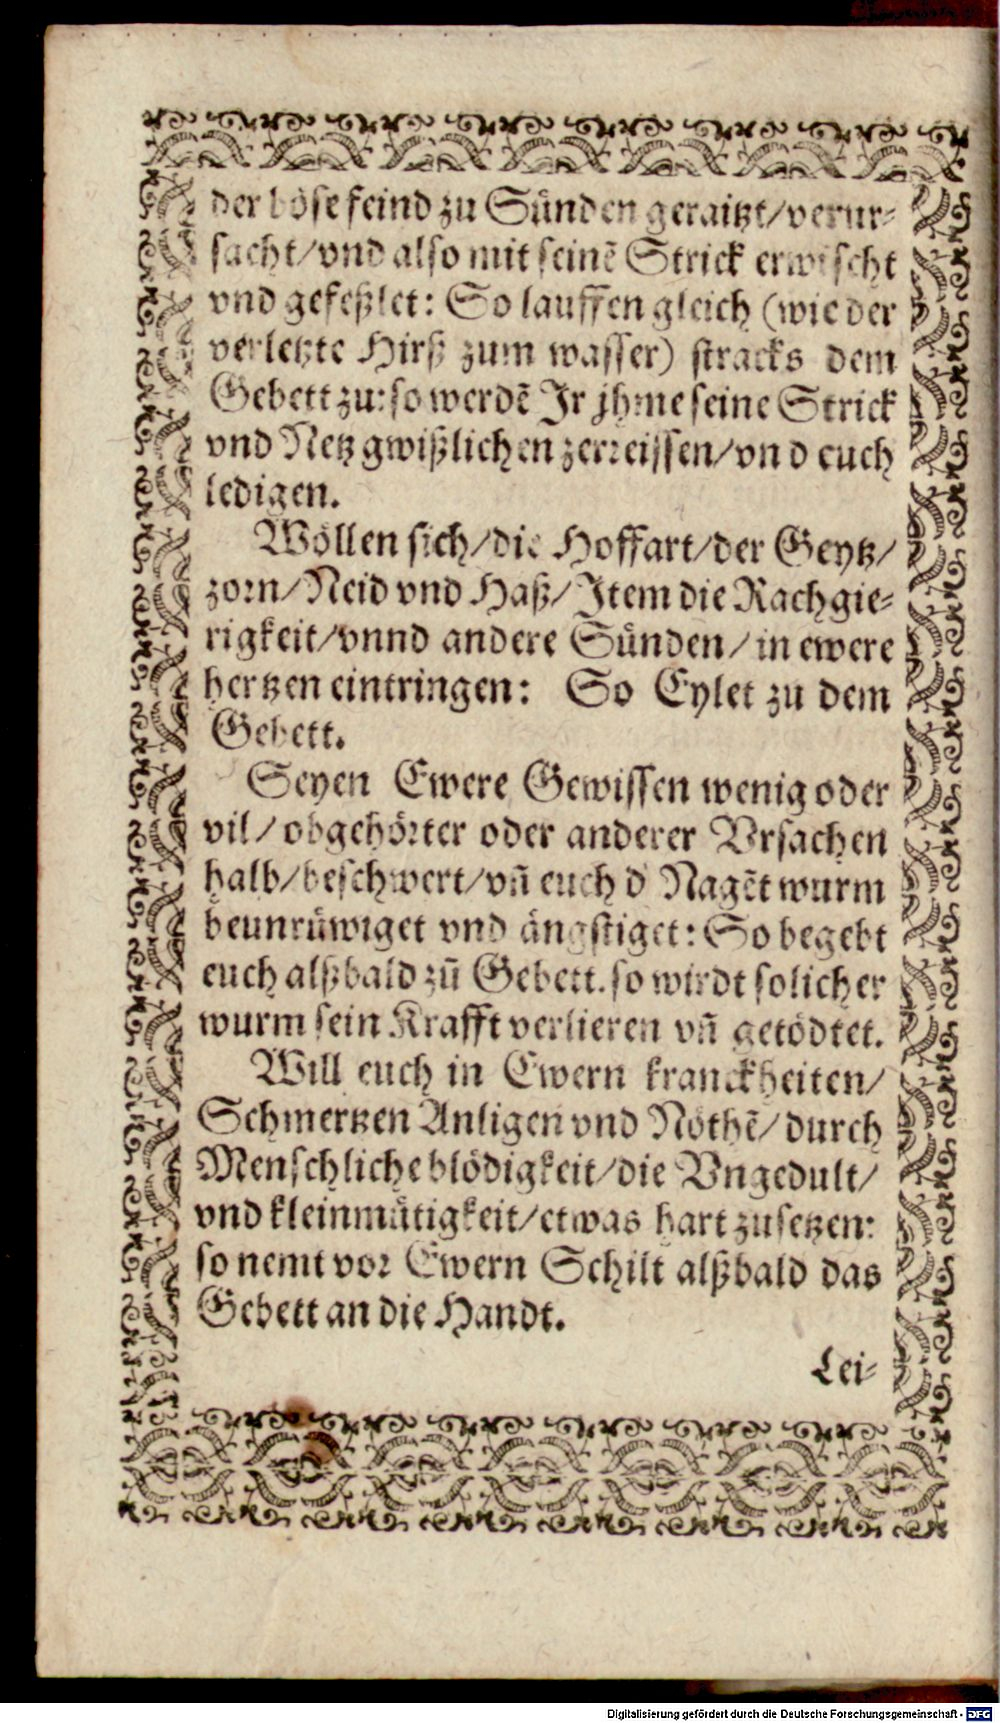 der böse feind zu Sünden geraitzt/verur-
sacht/vnd also mit seinẽ Strick erwischt
vnd gefeßlet: So lauffen gleich (wie der
verletzte Hirß zum wasser) stracks dem
Gebett zu: so werdẽ Ir jhme seine Strick
vnd Netz gwißlichen zerreissen/vnd euch
ledigen.
Wöllen sich/die Hoffart/der Geytz/
zorn/Neid vnd Haß/Item die Rachgie-
rigkeit/vnnd andere Sünden/in ewere
hertzen eintringen: So Eylet zu dem
Gebett.
Seyen Ewere Gewissen wenig oder
vil/obgehörter oder anderer Vrsachen
halb/beschwert/vñ euch d' Nagẽt wurm
beunrüwiget vnd ängstiget: So begebt
euch alßbald zũ Gebett. so wirdt solicher
wurm sein Krafft verlieren vñ getödtet.
Will euch in Ewern kranckheiten/
Schmertzen Anligen vnd Nöthẽ/durch
Menschliche blödigkeit/die Vngedult/
vnd kleinmütigkeit/etwas hart zusetzen:
so nemt vor Ewern Schilt alßbald das
Gebett an die Handt.
Lei-
Digitalisierung gefördert durch die Deutsche Forschungsgemeinschaft - DFG